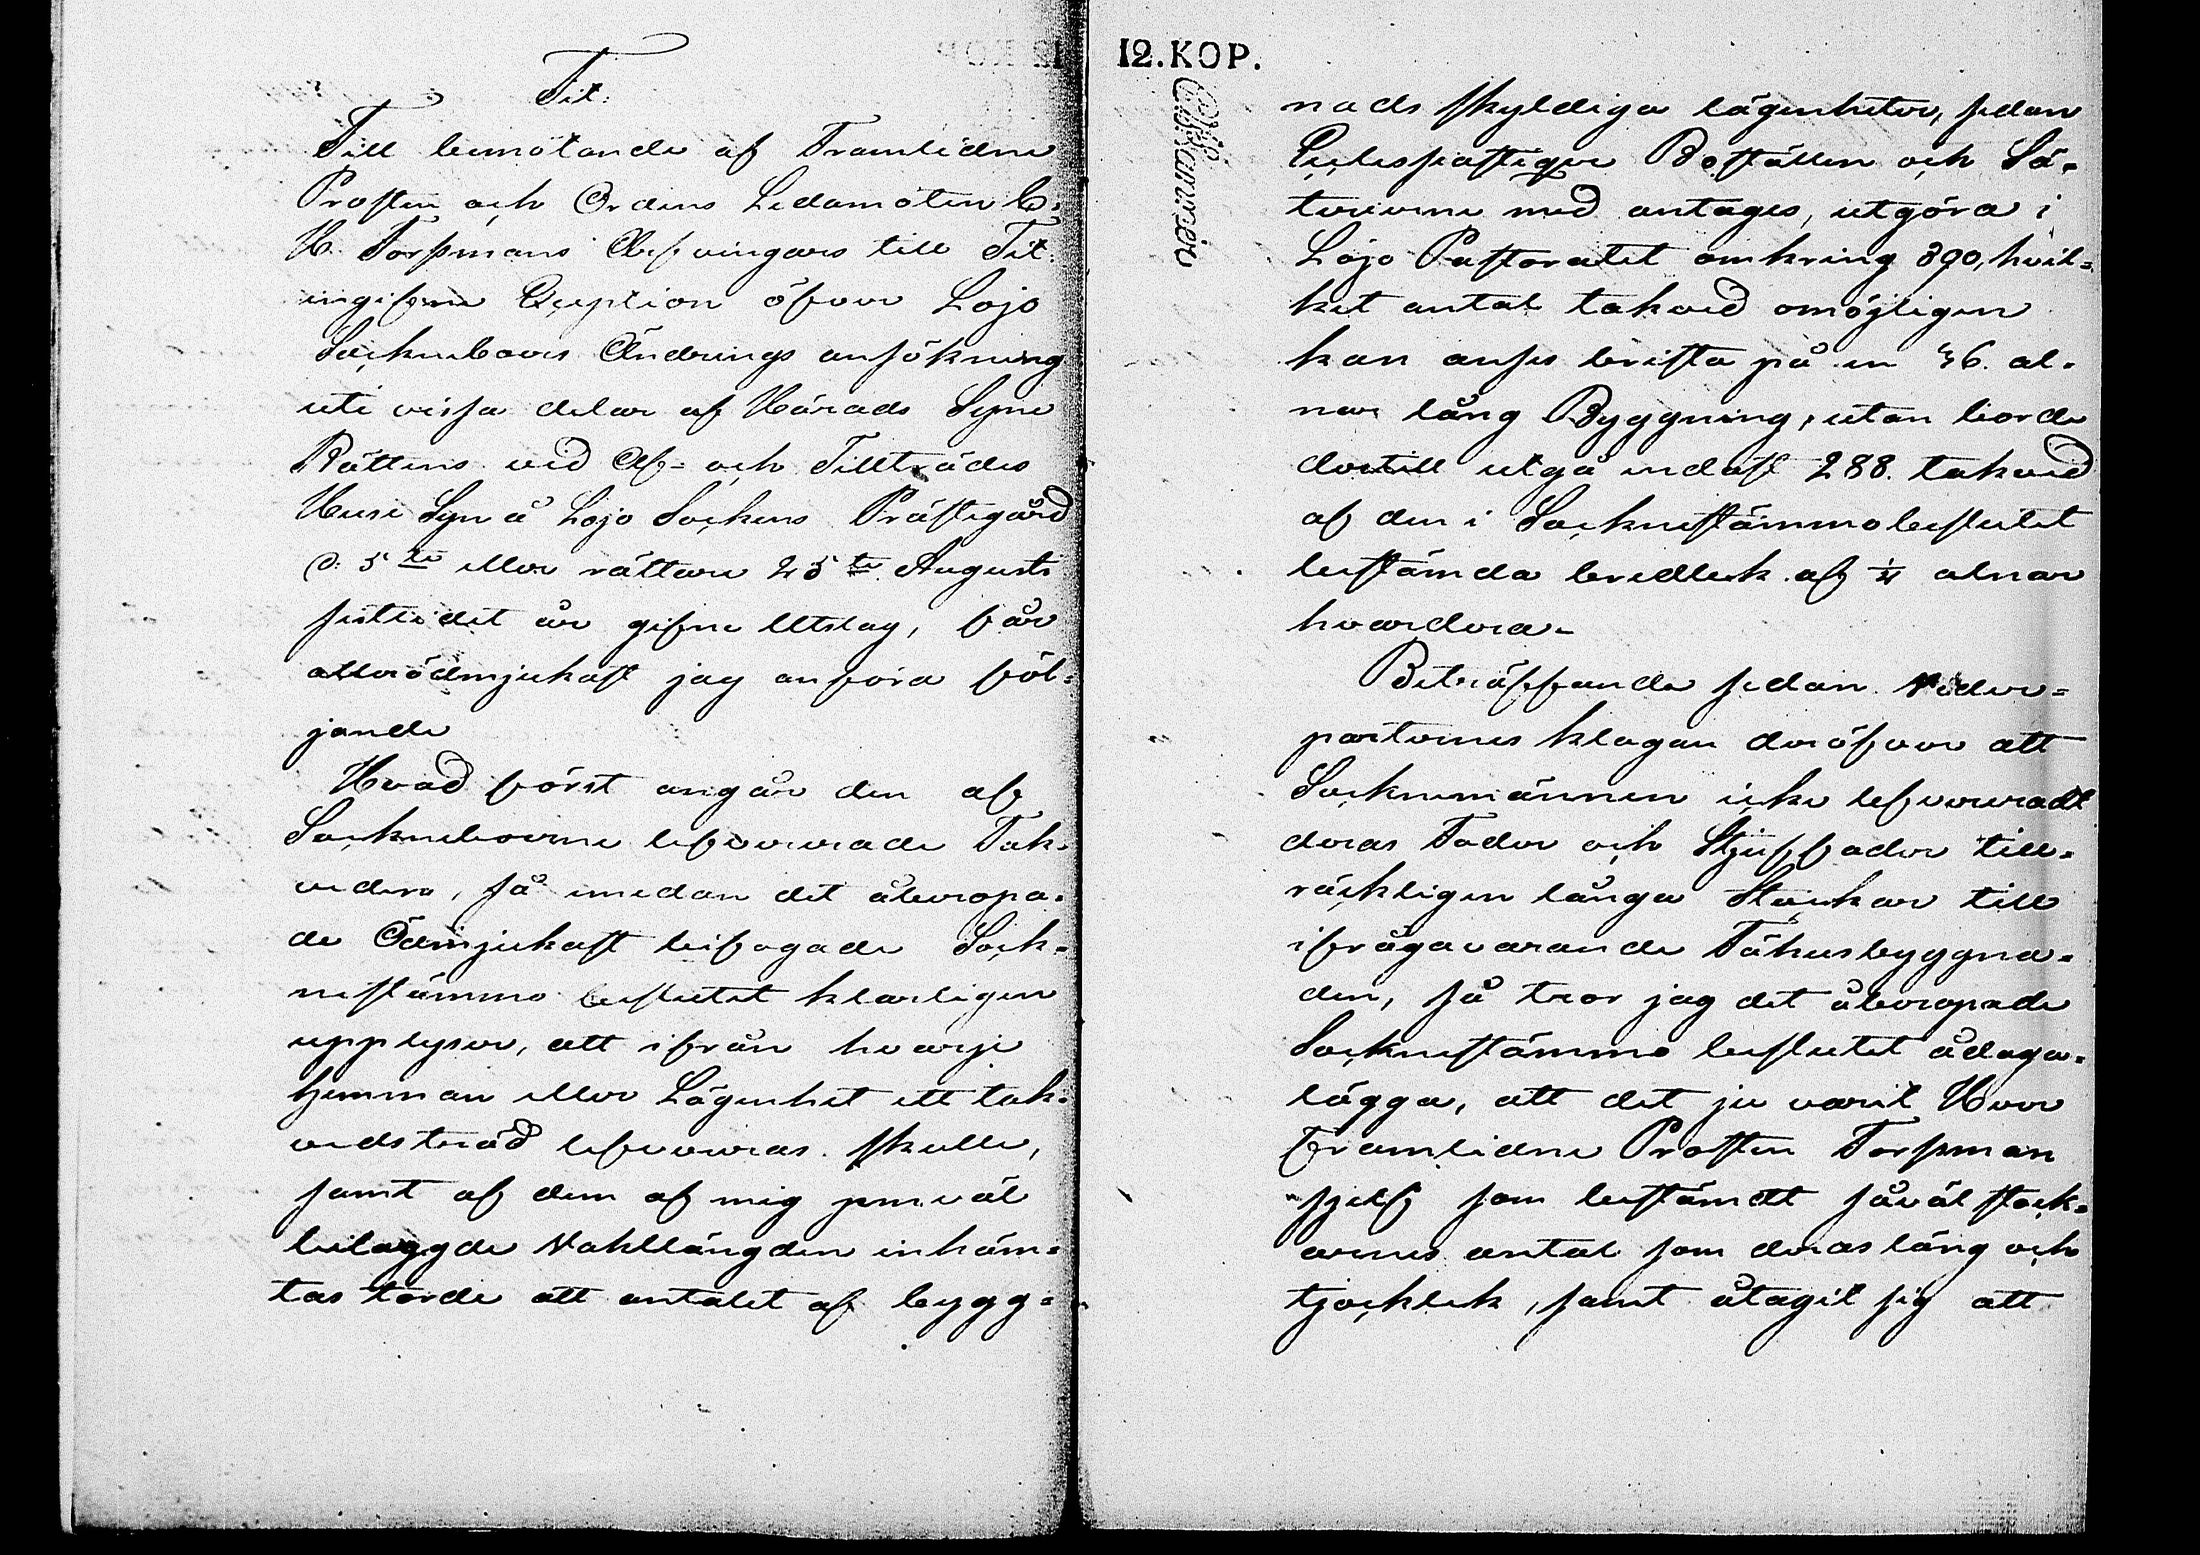 Tit:
Till bemötande af Framlidne
Prosten och Ordens Ledamoten C.
H. Forssmans Arfvingars till Tit:
ingifvne Exeption öfver Lojo
Sockneboers Ändrings ansökning
uti vissa delar af Härads Syne
Rättens vid Af- och Tillträdes
Huse Syn å Lojo Sockens Prästegård
d: 5te eller rättare 25te Augusti
sistledit år gifne Utslag, får
allerödmjukast jag anföra föl-
jande
Hvad först angår den af
Socknboerne lefvererade Tak-
veden, så emedan det åberopa-
de Ödmjukast bifogade Sock-
nestämmo beslutet klarligen
upplyser, att ifrån hvarje
Hemman eller Lägenhet ett tak-
vedsträd lefvereras skulle,
samt af den af mig jemväl
bilaggde Mahllängden inhäm-
tas torde att antalet af bygg-
12. KOP.
nads skyldiga lägenheter, sedan
Ecclesiastique Boställen och Sä-
tererne med antages, utgöra i
Lojo Pastoratet omkring 390, hvil-
ket antal takved omöjligen
kan anses brista på en 36. al-
nar lång Byggning, utan borde
dertill utgå endast 288. takved
af den i Socknestämmobeslutet
bestämda bredlek af ¼ alnar
hvardera.
Beträffande sedan Veder-
parternes klagan deröfver att
Socknemännen icke lefvereradt
deras Fader och Stjuffader till-
räckligen långa Stockar till
ifrågavarande Fähusbyggna-
den, så tror jag det åberopade
Socknestämmo beslutet ådaga-
lägga, att det ju varit Herr
Framlidne Prosten Forssman
sjelf som bestämdt såväl stock-
arnes antal som deras läng och
tjocklek, samt åtagit sig att